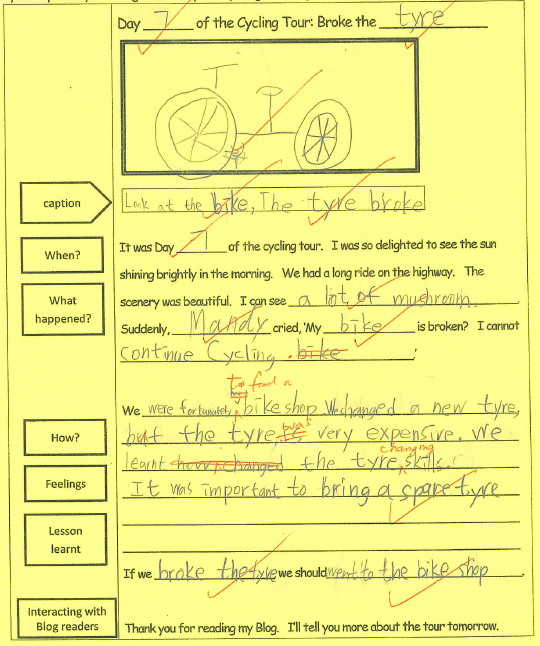 Day 7 of the Cycling Tour: Broke the tyre
caption
Look at the bike, The tyre broke
When?
It was Day 7 of the cycling tour. I was so delighted to see the sun
shining brightly in the morning. We had a long ride on the highway. The
What happened?
scenery was beautiful. I can see a lot of mushroom.
Suddenly, Mandy cried, 'My bike is broken? I cannot
continue Cycling. bike
to find a
We were fortunately bike shop. We changed a new tyre,
was
How?
but the tyre is very expensive. We
changing
learnt how changed the tyre skills.
Feelings
It was important to bring a spare tyre
Lesson learnt
If we broke the tyre we should went to the bike shop.
Interacting with Blog readers
Thank you for reading my Blog. I'll tell you more about the tour tomorrow.